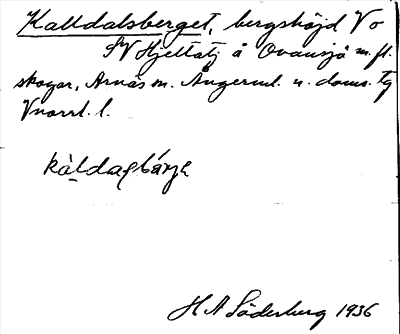 Kalldalsberget, bergshöjd V o
SV Hjeltatj å Ovansjö m. fl.
skogar, Arnäs sn. Ångerml. n. doms. tg
Vnorrl. l.
kàldaɐbárjə
H A Söderberg 1936